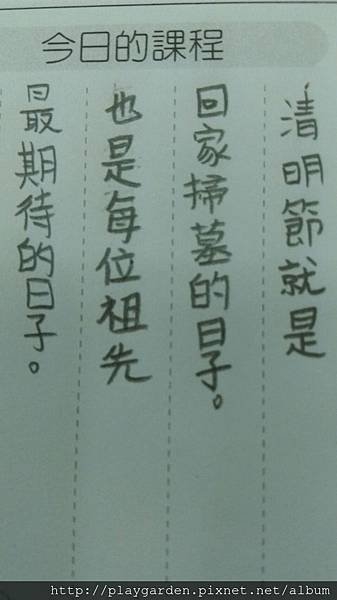 今日的課程
清明節就是
回家掃墓的日子。
也是每位祖先
最期待的日子。
http://playgarden.pixnet.net/album